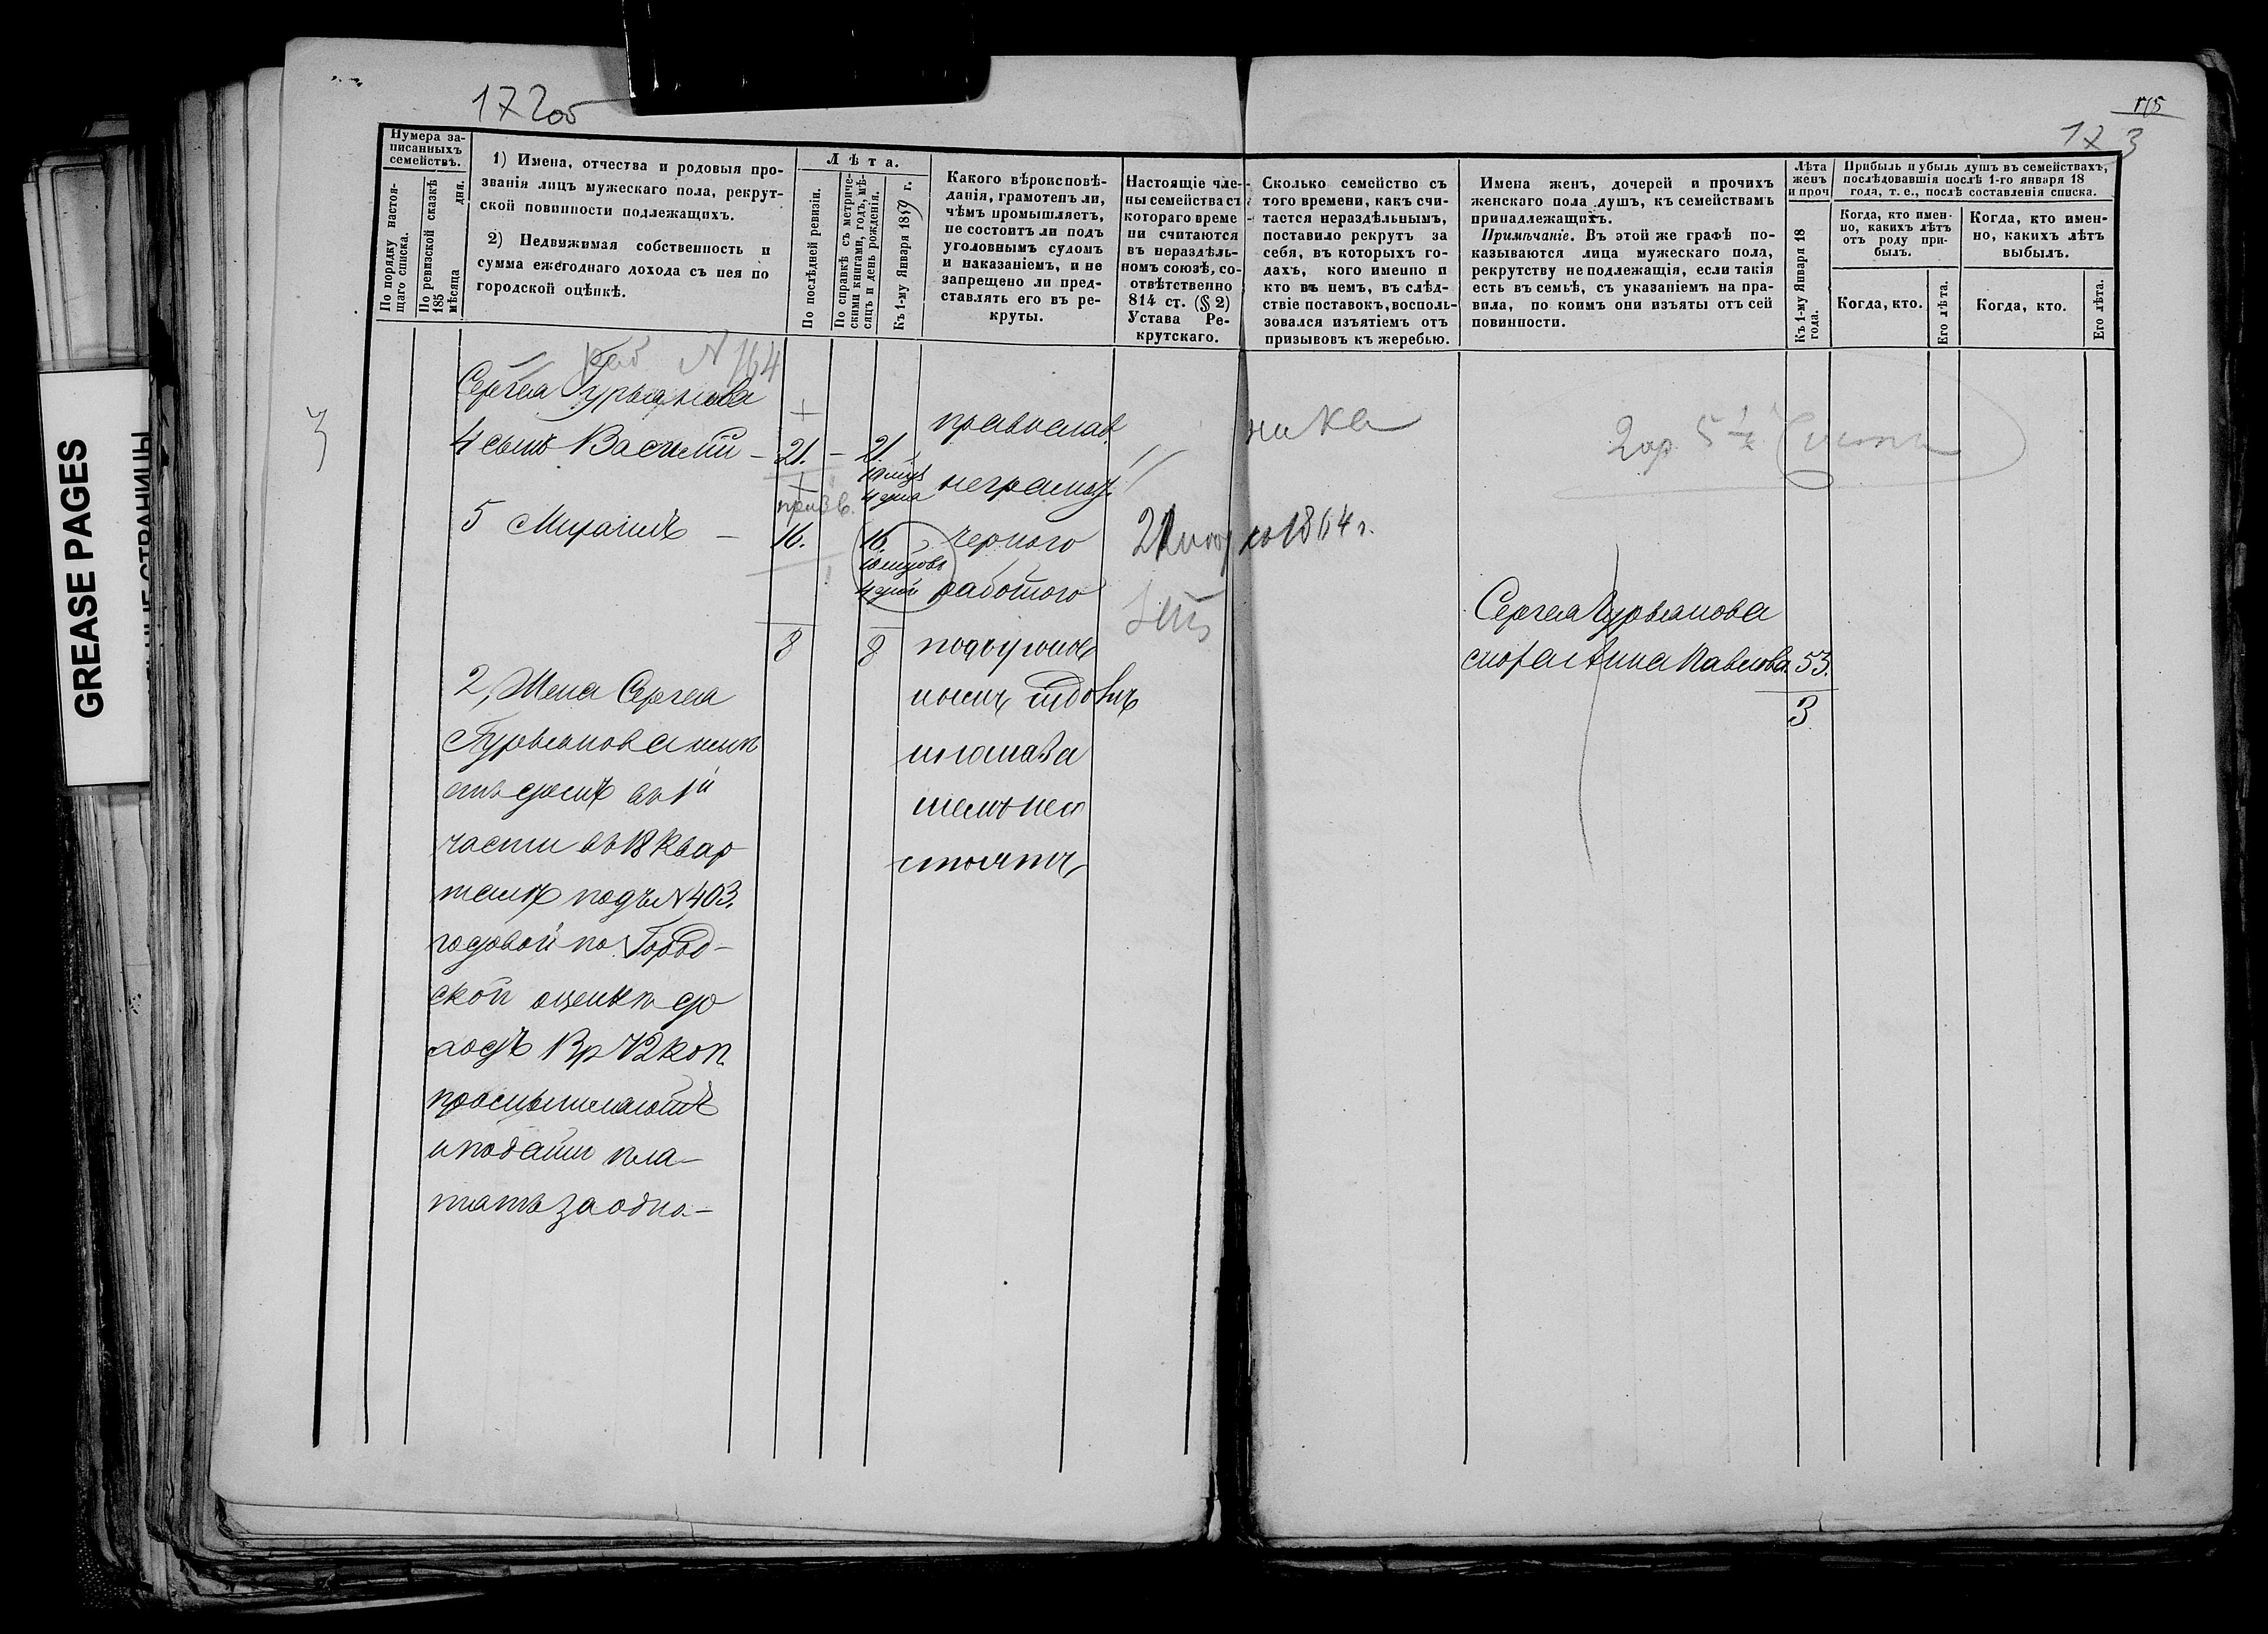 172об
175
173
GREASE PAGES
Нумера записанныхъ семействъ.
По порядку настоящаго списка.
По ревизской сказкѣ 185 мѣсяца дня.
1) Имена, отчества и родовыя прозванія лицъ мужескаго пола, рекрутской повинности подлежащихъ.
2) Недвижимая собственность и сумма ежегоднаго дохода съ нея по городской оцѣнкѣ.
Лѣта.
По послѣдней ревизіи.
По справкѣ съ метрическими книгами, годъ, мѣсяцъ и день рожденія.
Къ 1-му Января 1859 г.
Какого вѣроисповѣданія, грамотенъ ли, чѣмъ промышляетъ, не состоитъ ли подъ уголовнымъ судомъ и наказаніемъ, и не запрещено ли представлять его въ рекруты.
Настоящіе члены семейства съ котораго времени считаются въ нераздѣльномъ союзѣ, соотвѣтственно 814 ст. (§ 2) Устава Рекрутскаго.
Сколько семейство съ того времени, какъ считается нераздѣльнымъ, поставило рекрутъ за себя, въ которыхъ годахъ, кого именно и кто въ немъ, въ слѣдствіе поставокъ, воспользовался изъятіемъ отъ призывовъ къ жеребью.
Имена женъ, дочерей и прочихъ женскаго пола душъ, къ семействамъ принадлежащихъ.
Примѣчаніе. Въ этой же графѣ показываются лица мужескаго пола, рекрутству не подлежащія, если такія есть въ семьѣ, съ указаніемъ на правила, по коимъ они изъяты отъ сей повинности.
Лѣта женъ и проч
Къ 1-му Января 18 года.
Прибыль и убыль душъ въ семействахъ, послѣдовавшія послѣ 1-го января 18 года, т. е., послѣ составленія списка.
Когда, кто именно, какихъ лѣтъ отъ роду прибылъ.
Когда, кто именно, какихъ лѣтъ выбылъ.
Когда, кто.
Его лѣта.
Когда, кто.
Его лѣта.
N 164
Сергея Гурьянова
4 сынъ Василий – 21. – 21.
5 Михаилъ – 16. 16.
8 8
православ.
неграмот.
чернаго
работаго
подсудомъ
2, Жена Сергея
Гурьянова имѣ
етъ домъ въ 1й
части въ 18 квар
талѣ подъ N 403.
годовой по Город-
ской оценкѣ до
ходъ 1 р 72 коп.
промышляютъ
и подати пла-
тятъ за одно-
1864 г.
Сергея Гурьянова
Анна Павлова. 53.
3